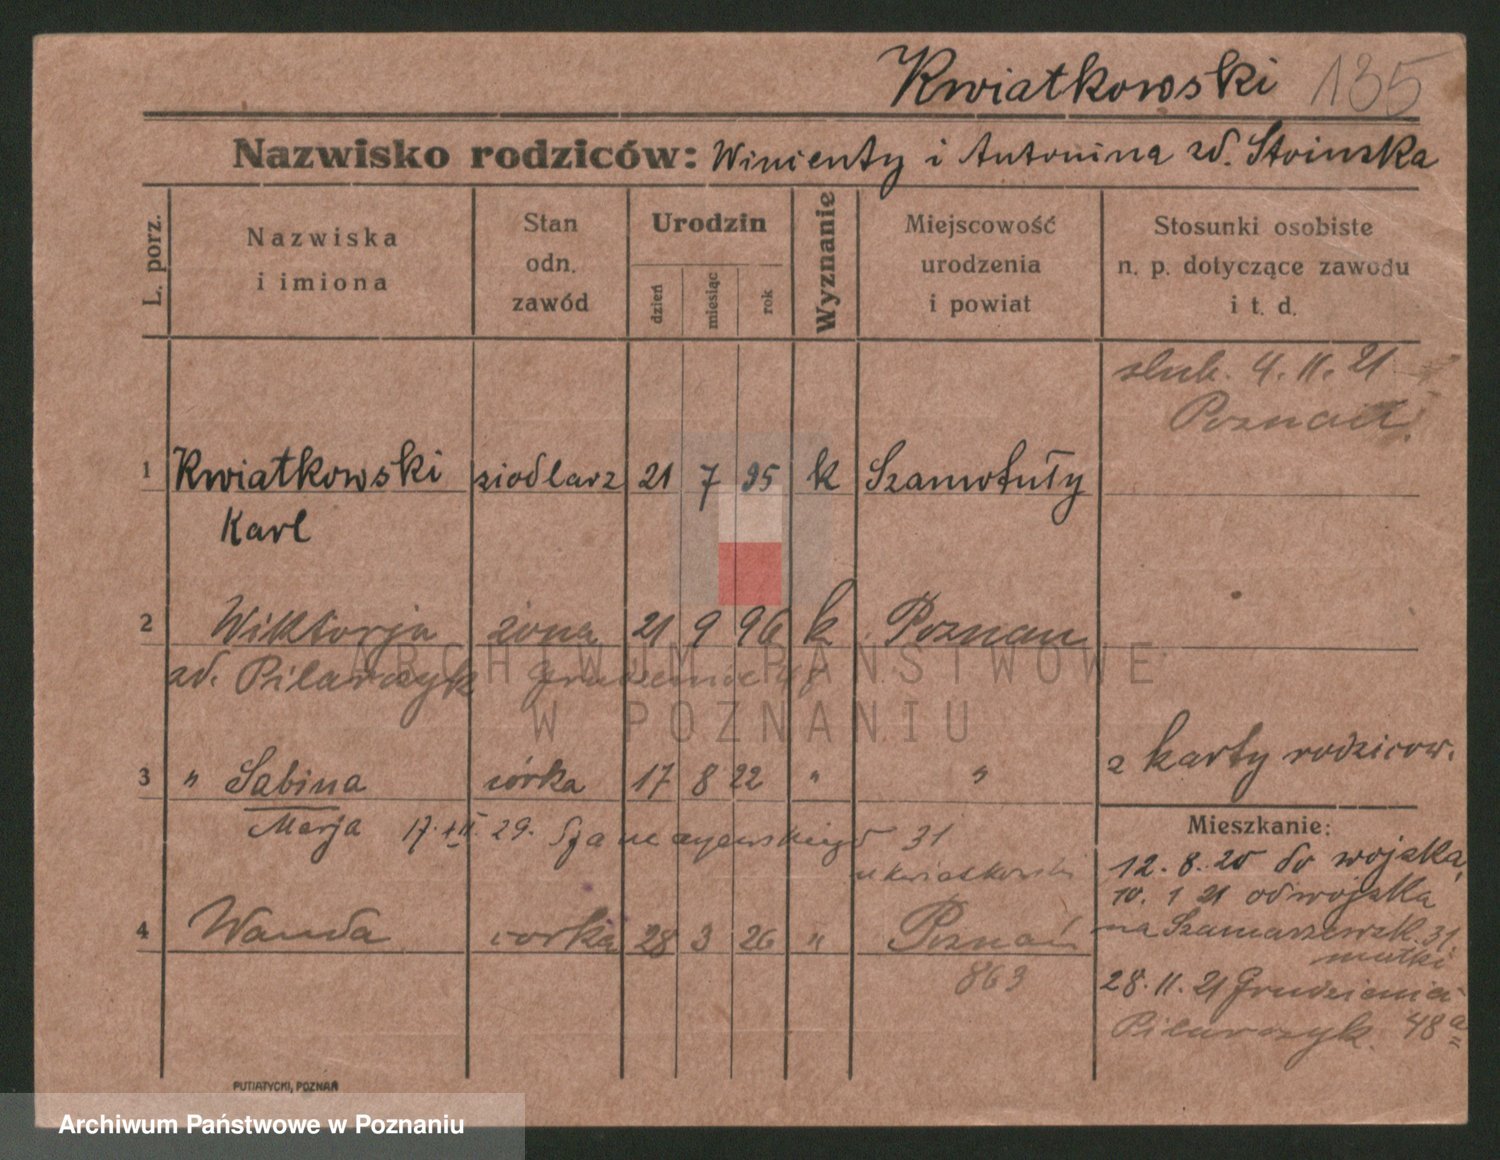 Kwiatkowski 135
Nazwisko rodziców: Wincenty i Antonina zd. Stoinska
L. porz.
Nazwiska
i imiona
Stan
odn.
zawód
Urodzin
dzień
miesiąc
rok
Wyznanie
Miejscowość
urodzenia
i powiat
Stosunki osobiste
n. p. dotyczące zawodu
i t. d.
slub. 4. 11. 21
Poznań
1 Kwiatkowski siodlarz 21 7 95 k Szamotuły
Karl
2 Wiktorja żona 21 9 96 k Poznan
zd. Pilarczyk
3 " Sabina córka 17 8 22 " " z karty rodzicow.
Marja 17. 29. 31
u Kwiatkowski
4 Wanda corka 28 3 26 " Poznań
863
Mieszkanie:
12. 8. 20 do wojska,
10. 1 21 od wojska
na Szamarzewsk. 31.
matki
28. 11. 21
Pilarczyk. 48a
PUTIATYCKI, POZNAŃ
ARCHIWUM PAŃSTWOWE
W POZNANIU
Archiwum Państwowe w Poznaniu